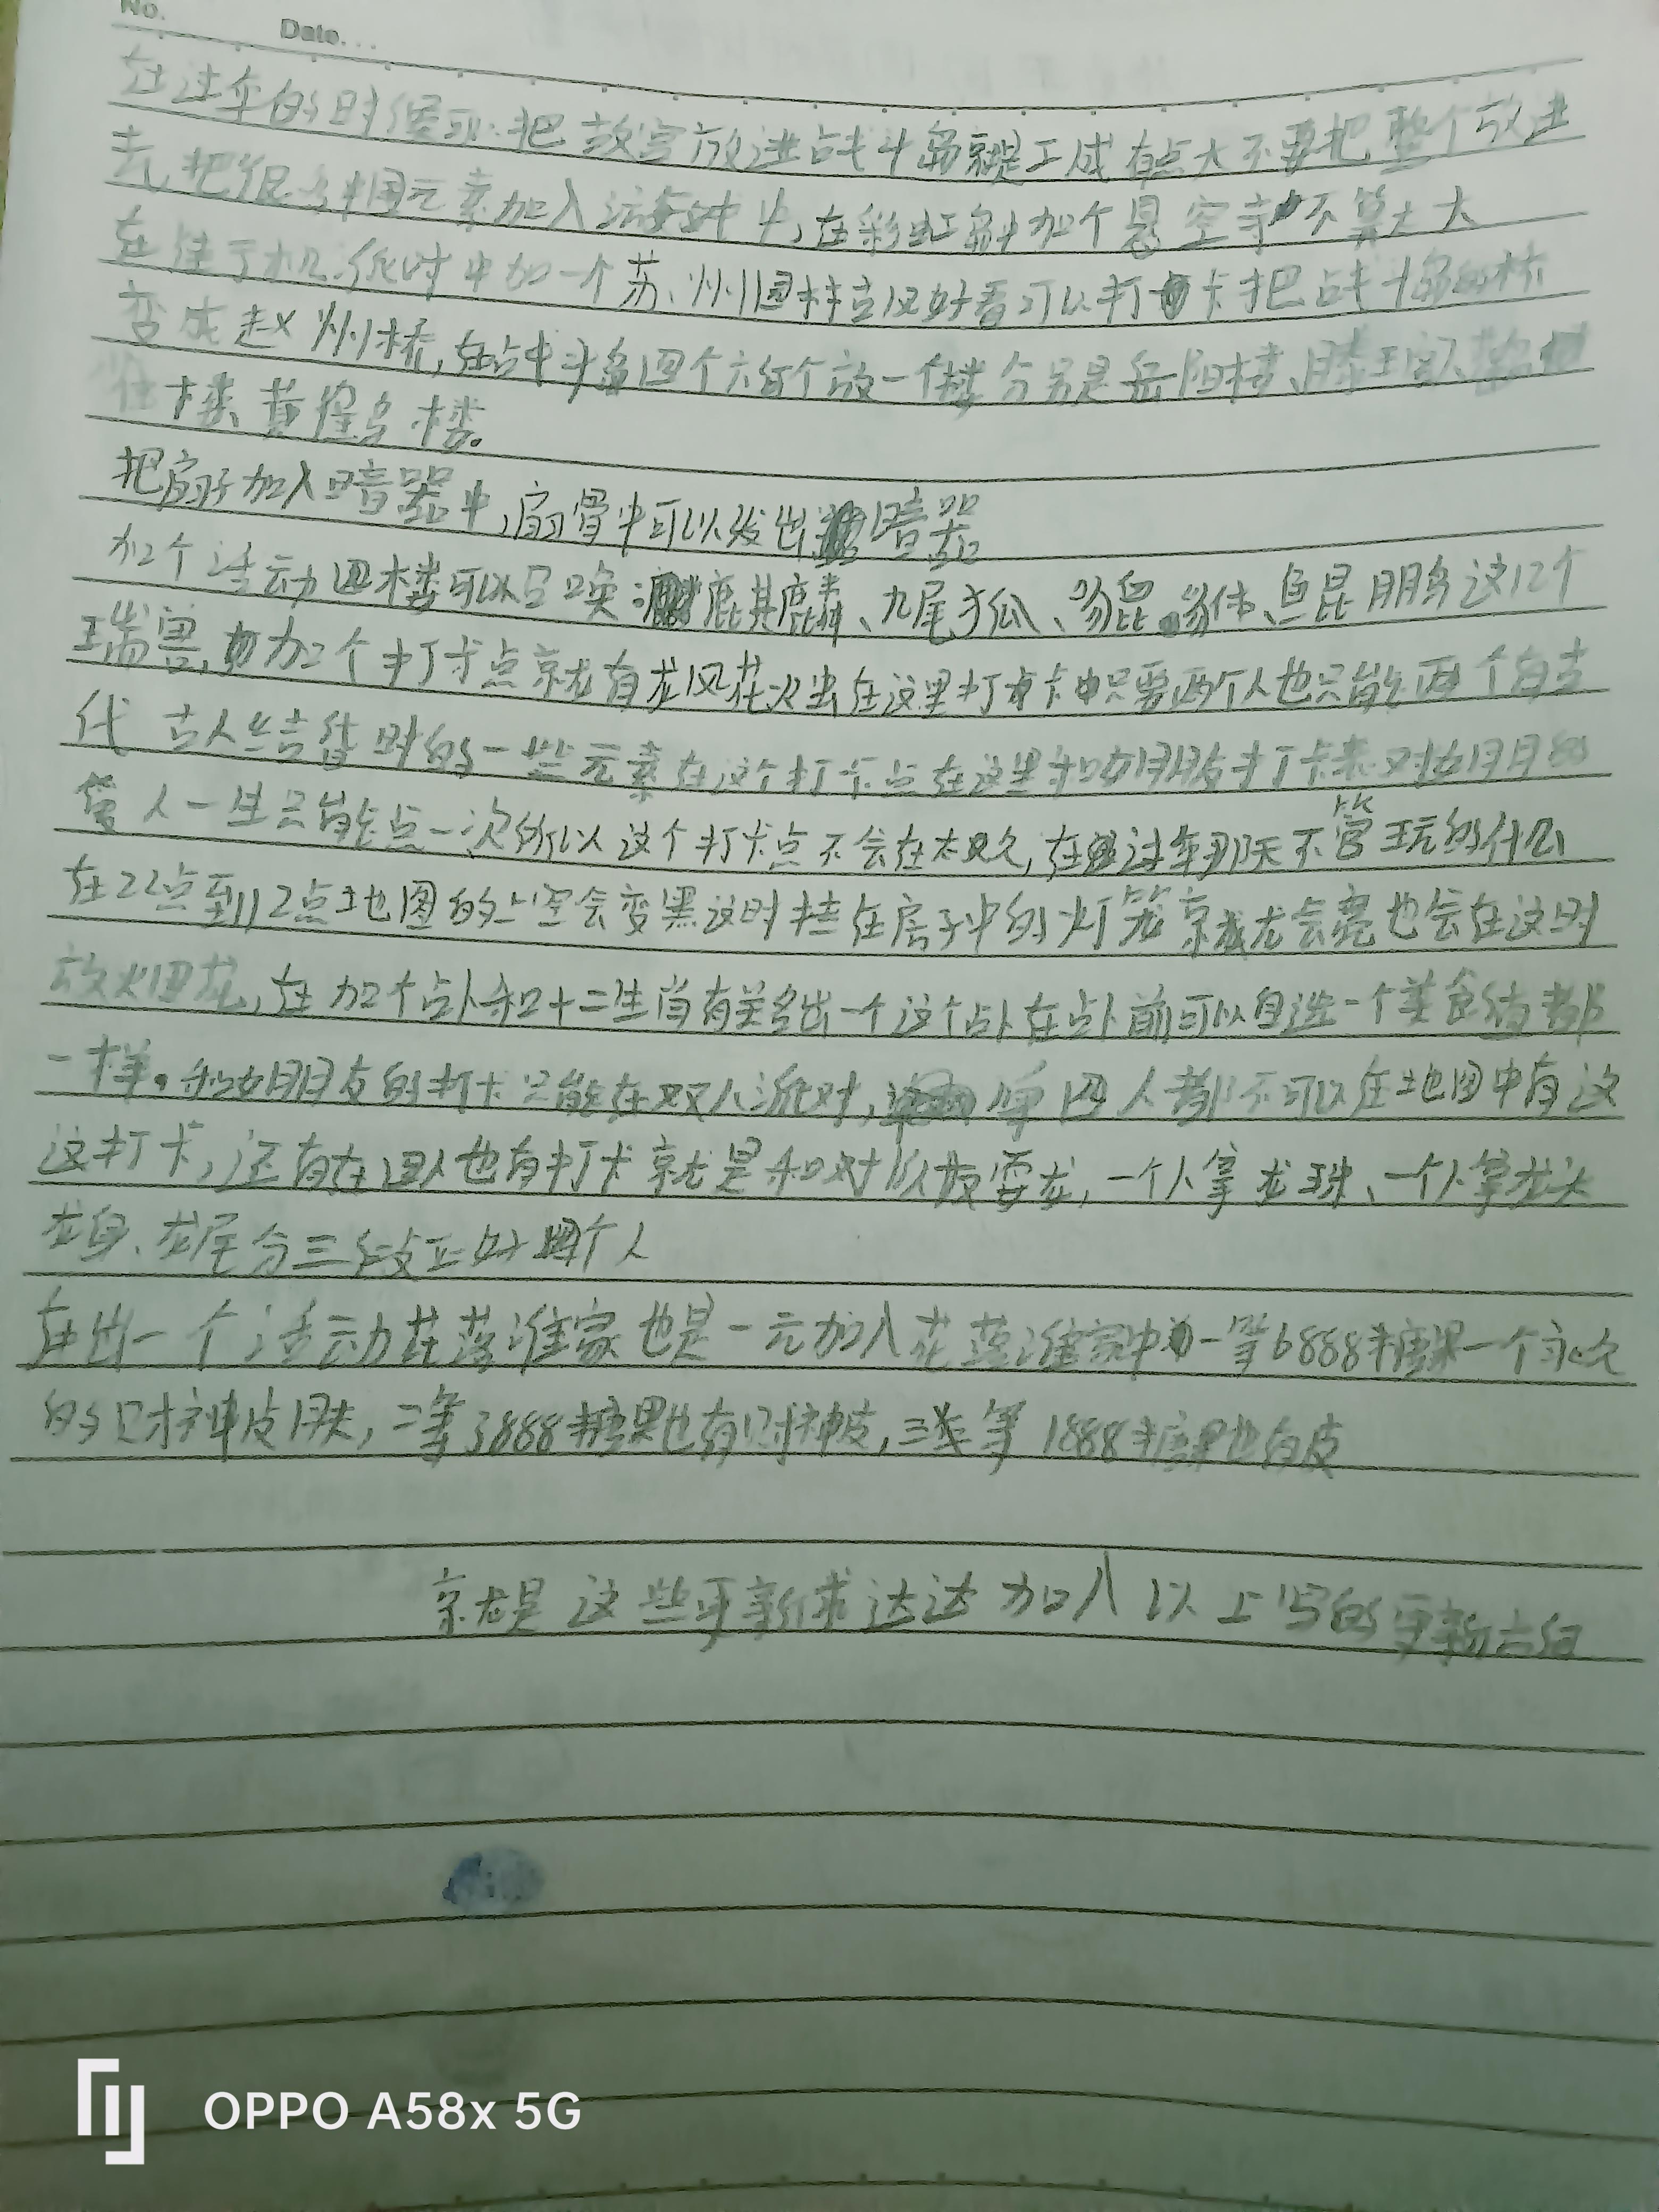 No.
Date...
在过年的时候可以把故宫放进战斗岛就是工成有点大不要把整个放进
去,把很多中国元素加入派对中,在彩虹岛中加个悬空寺不算太大
在 派对中加一个苏州园林 好看可以打卡把战斗岛的桥
变成赵州桥,在战斗岛四个 个放一个楼分别是岳阳楼、滕王阁、
楼、黄鹤楼。
把扇子加入暗器中,扇骨中可以发出暗器
加个活动四楼可以召唤 麒麟、九尾狐、 、鲲鹏这12个
瑞兽,加个打卡点就有龙凤花 在这里打卡中只要两个人也只能两个有古
代 古人结婚时的一些元素在这个打卡点在这里和女朋友打卡表对女朋
人一生只能点一次所以这个打卡点不会在太久,在过年那天不管玩的什么
在22点到12点地图的上空会变黑这时挂在房子中的灯笼就会亮也会在这时
放火 龙,在加个占卜和十二生肖有关多出一个这个占卜在占卜前可以自选一个美食 都
一样。和女朋友的打卡只能在双人派对, 单四人都不可以在地图中有这
这打卡,还有在四人也有打卡就是和对队友耍龙,一个人拿龙珠、一个人拿龙头
龙身、龙尾分三段正好四个人
在出一个活动花落谁家也是一元加入花落谁家中一等6888糖果一个永久
的财神皮肤,二等3888糖果也有财神皮,三等1888糖果也有皮
就是这些更新求达达加入以上写的更新
OPPO A58x 5G